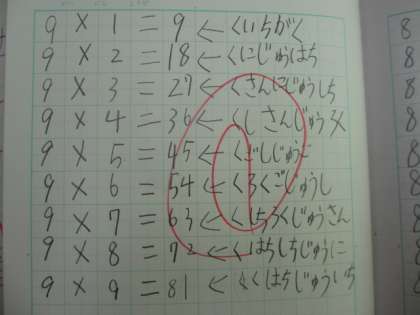 9 × 1 = 9 ← くいちがく
9 × 2 = 18 ← くにじゅうはち
9 × 3 = 27 ← くさんにじゅうしち
9 × 4 = 36 ← くしさんじゅうろく
9 × 5 = 45 ← くごしじゅうご
9 × 6 = 54 ← くろくごじゅうし
9 × 7 = 63 ← くしちろくじゅうさん
9 × 8 = 72 ← くはちしちじゅうに
9 × 9 = 81 ← くくはちじゅういち
8
8
8
8
8
8
8